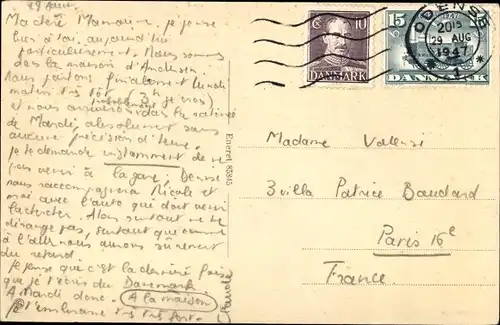 29 Aout.
Ma chère Mamoune, je pense
bien à toi, aujourd'hui
particulièrement. Nous sommes
dans la maison d'Andersen.
Nous partons finalement lundi
matin très tôt (5h je crois)
et nous arriverons probablement dans la matinée
de Mardi, absolument sans
aucune précision d'heure.
je te demande instamment de ne
pas venir à la gare; Denise
nous raccompagnera Nicole et
moi avec l'auto que doit venir
la chercher. Alors surtout ne te
dérange pas, surtout que comme
à l'aller nous aurons sûrement
du retard.
Je pense que c'est la dernière fois
que je t'écris du Danemark
A Mardi donc. A la maison
Je t'embrasse très très fort.
Claude
Eneret 85845
10
DANMARK
15
DANMARK
ODENSE
2015
29 AUG
1947
1
Madame Vallensi
3 villa Patrice Boudard
Paris 16e
France